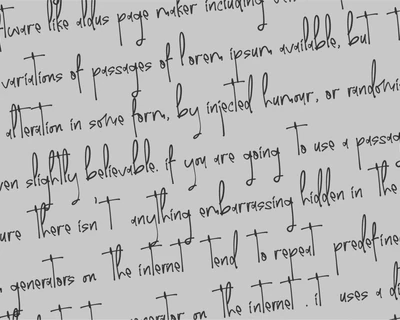 ftware like aldus page maker including
variations of passages of lorem ipsum available, but T
alteration in some form, by injected humour, or randomi
ven slightly believable. if you are going To use a passag
ure There isn'T anything embarrassing hidden in The
generators on The internet Tend To repeat predefine
on The internet . iT uses a di